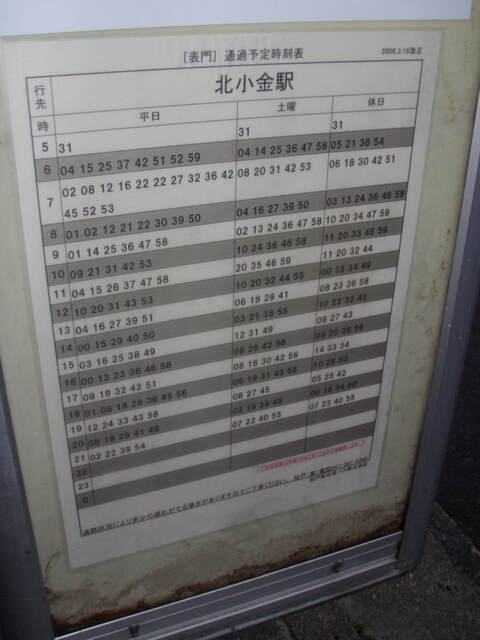 [表門] 通過予定時刻表
2006.3.16改正
行先 北小金駅
時 平日 土曜 休日
5 31 31 31
6 04 15 25 37 42 51 52 59 04 14 25 36 47 58 05 21 38 54
7 02 08 12 16 22 22 27 32 36 42 08 20 31 42 53 06 18 30 42 51
45 52 53
8 01 02 12 21 22 30 39 50 04 16 27 39 50 03 13 24 36 46 58
9 01 14 25 36 47 58 02 13 24 36 47 58 10 20 34 47 59
10 09 21 31 42 53 10 24 36 46 58 11 20 33 45 59
11 04 15 26 37 47 58 20 35 46 59 11 20 32 44
12 10 20 31 43 53 10 20 32 44 55 00 15 34 49
13 04 16 27 39 51 06 18 29 41 08 23 36 58
14 00 15 29 40 50 03 21 38 55 10 23 32 45
15 03 16 25 38 49 12 31 49 09 27 43
16 00 12 23 36 46 58 08 26 42 56 08 20 38 59
17 09 19 32 42 51 08 18 30 42 56 14 33 54
18 01 08 18 28 36 45 56 06 19 31 43 58 10 28 50
19 12 24 33 43 58 08 27 45 05 25 42
20 08 18 29 41 49 02 19 34 49 00 18 34 50
21 02 22 39 54 07 22 40 55 07 23 40 55
22
23
0
道路状況により多少の遅れがでる場合がありますのでご了承ください。